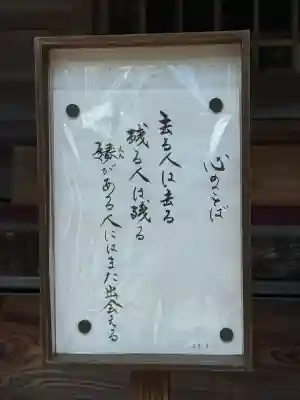 心のことば
去る人は去る
残る人は残る
縁がある人にはまた出会える
えん